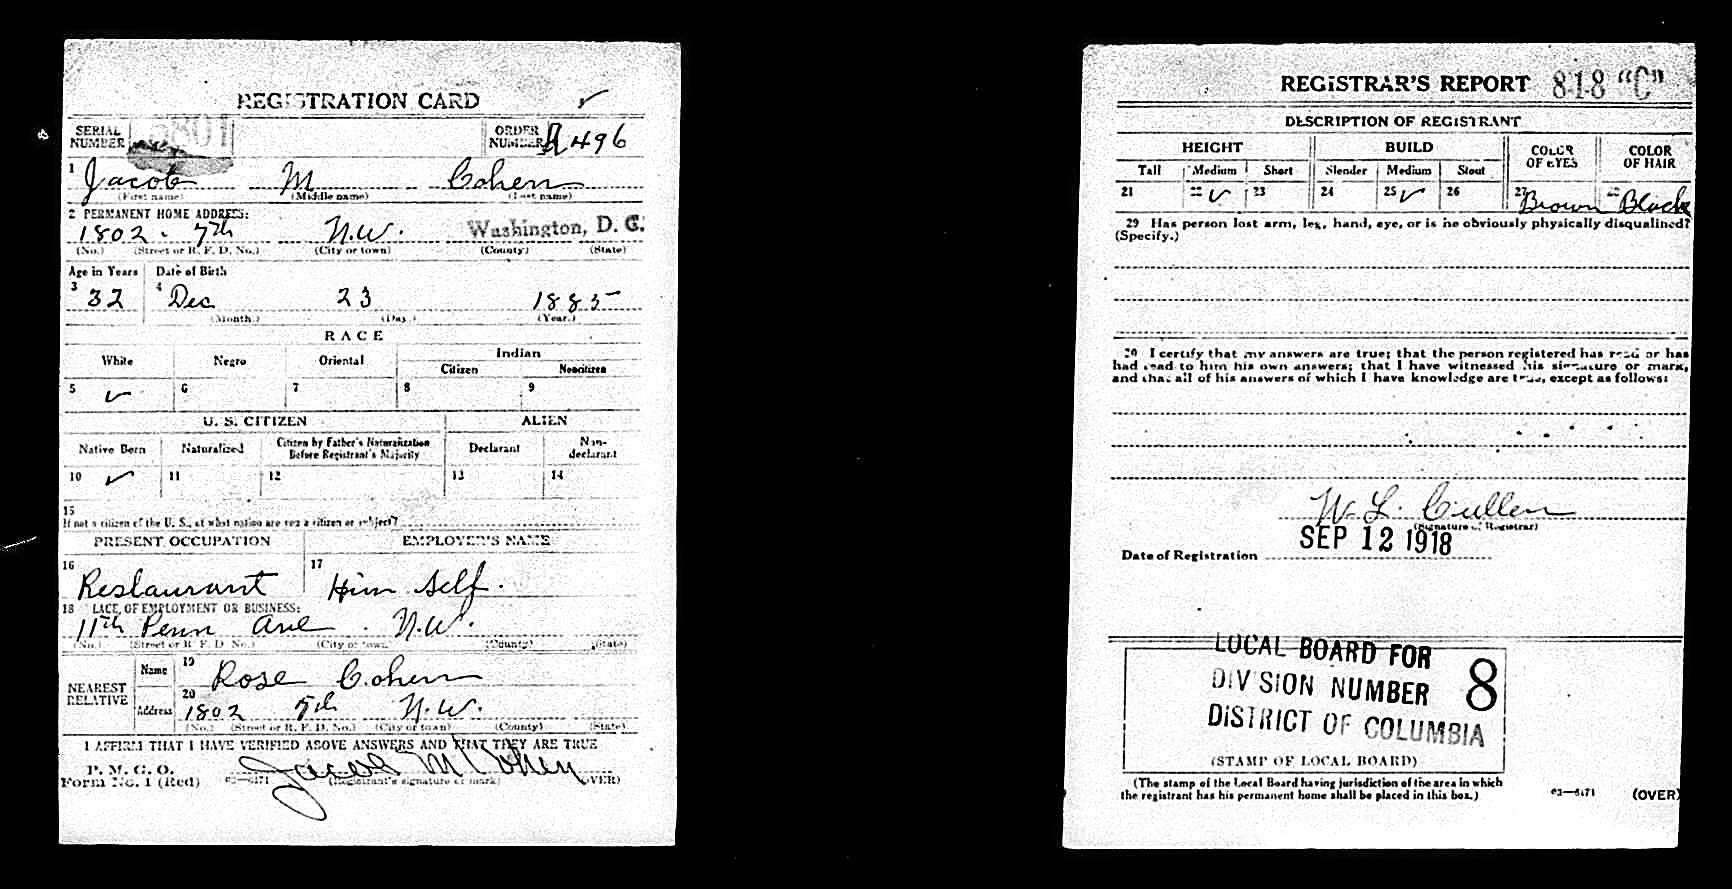 REGISTRATION CARD
SERIAL NUMBER
ORDER NUMBER A496
1 Jacob M Cohen
(First name) (Middle name) (Last name)
2 PERMANENT HOME ADDRESS:
1802 - 7th N.W. Washington, D. C.
(No.) (Street or R. F. D. No.) (City or town) (County) (State)
Age in Years Date of Birth
3 32 4 Dec 23 1885
(Month.) (Day.) (Year.)
RACE
White Negro Oriental Indian
Citizen Noncitizen
5 ✓ 6 7 8 9
U. S. CITIZEN ALIEN
Native Born Naturalized Citizen by Father's Naturalization Before Registrant's Majority Declarant Non-declarant
10 ✓ 11 12 13 14
15
If not a citizen of the U. S., of what nation are you a citizen or subject?
PRESENT OCCUPATION EMPLOYER'S NAME
16 Restaurant 17 Him self.
18 PLACE OF EMPLOYMENT OR BUSINESS:
11th Penn Ave. N.W.
(No.) (Street or R. F. D. No.) (City or town) (County) (State)
NEAREST RELATIVE
Name 19 Rose Cohen
Address 20 1802 7th N.W.
(No.) (Street or R. F. D. No.) (City or town) (County) (State)
I AFFIRM THAT I HAVE VERIFIED ABOVE ANSWERS AND THAT THEY ARE TRUE
P. M. G. O.
Form No. 1 (Red) 03—6171 Jacob M Cohen (OVER)
(Registrant's signature or mark)
REGISTRAR'S REPORT 8-1-8 "C"
DESCRIPTION OF REGISTRANT
HEIGHT BUILD COLOR OF EYES COLOR OF HAIR
Tall Medium Short Slender Medium Stout
21 22 ✓ 23 24 25 ✓ 26 27 Brown 28 Black
29 Has person lost arm, leg, hand, eye, or is he obviously physically disqualified?
(Specify.)
30 I certify that my answers are true; that the person registered has read or has
had read to him his own answers; that I have witnessed his signature or mark,
and that all of his answers of which I have knowledge are true, except as follows:
W. L. Cullen
(Signature of Registrar)
Date of Registration SEP 12 1918
LOCAL BOARD FOR
DIVISION NUMBER 8
DISTRICT OF COLUMBIA
(STAMP OF LOCAL BOARD)
(The stamp of the Local Board having jurisdiction of the area in which
the registrant has his permanent home shall be placed in this box.)
03—6171 (OVER)